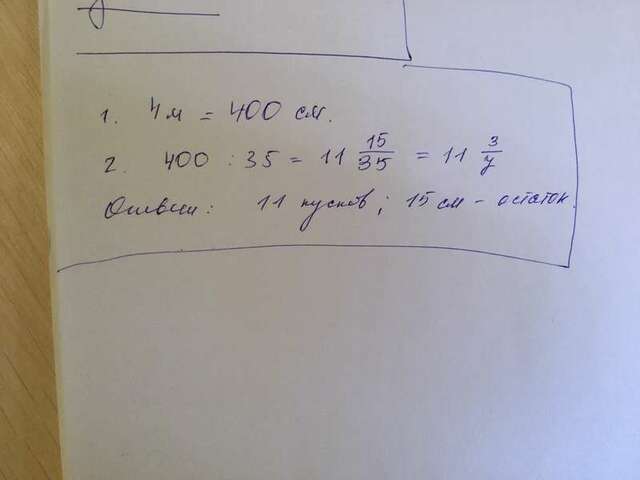 1. 4 м = 400 см.
2. 400 : 35 = 11 15/35 = 11 3/7
Ответ: 11 кусков; 15 см - остаток.